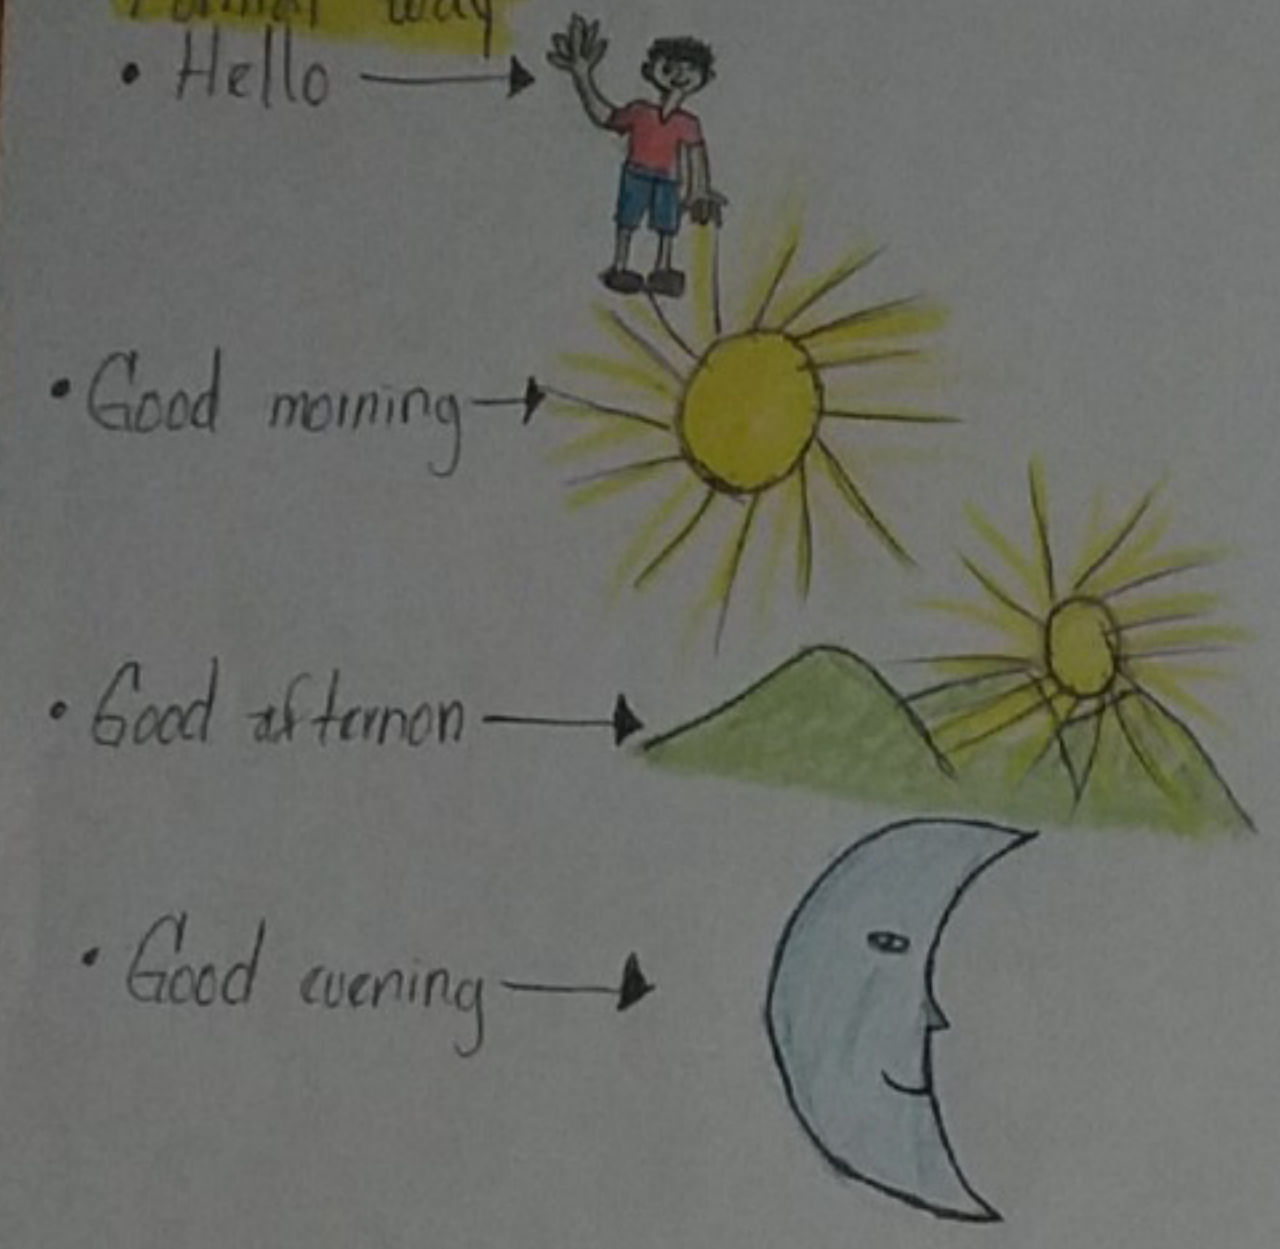 Formal way
• Hello
• Good morning
• Good afternon
• Good evening